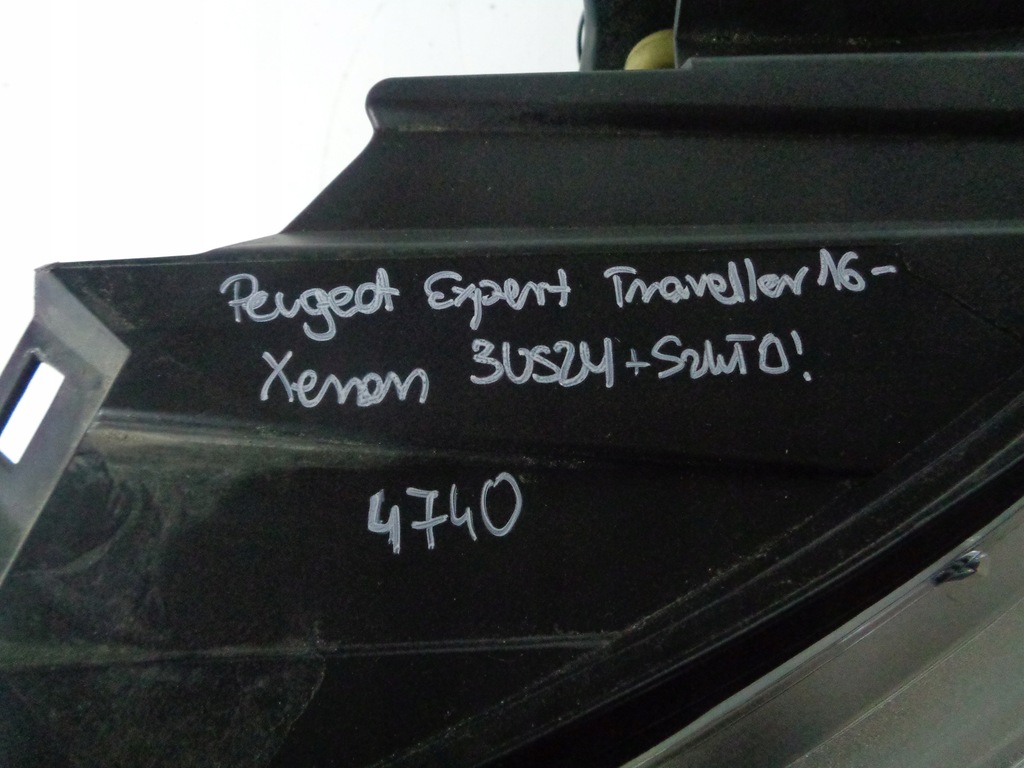 Peugeot Expert Traveller 16-
Xenon 3USZY + SZKŁO!
4740